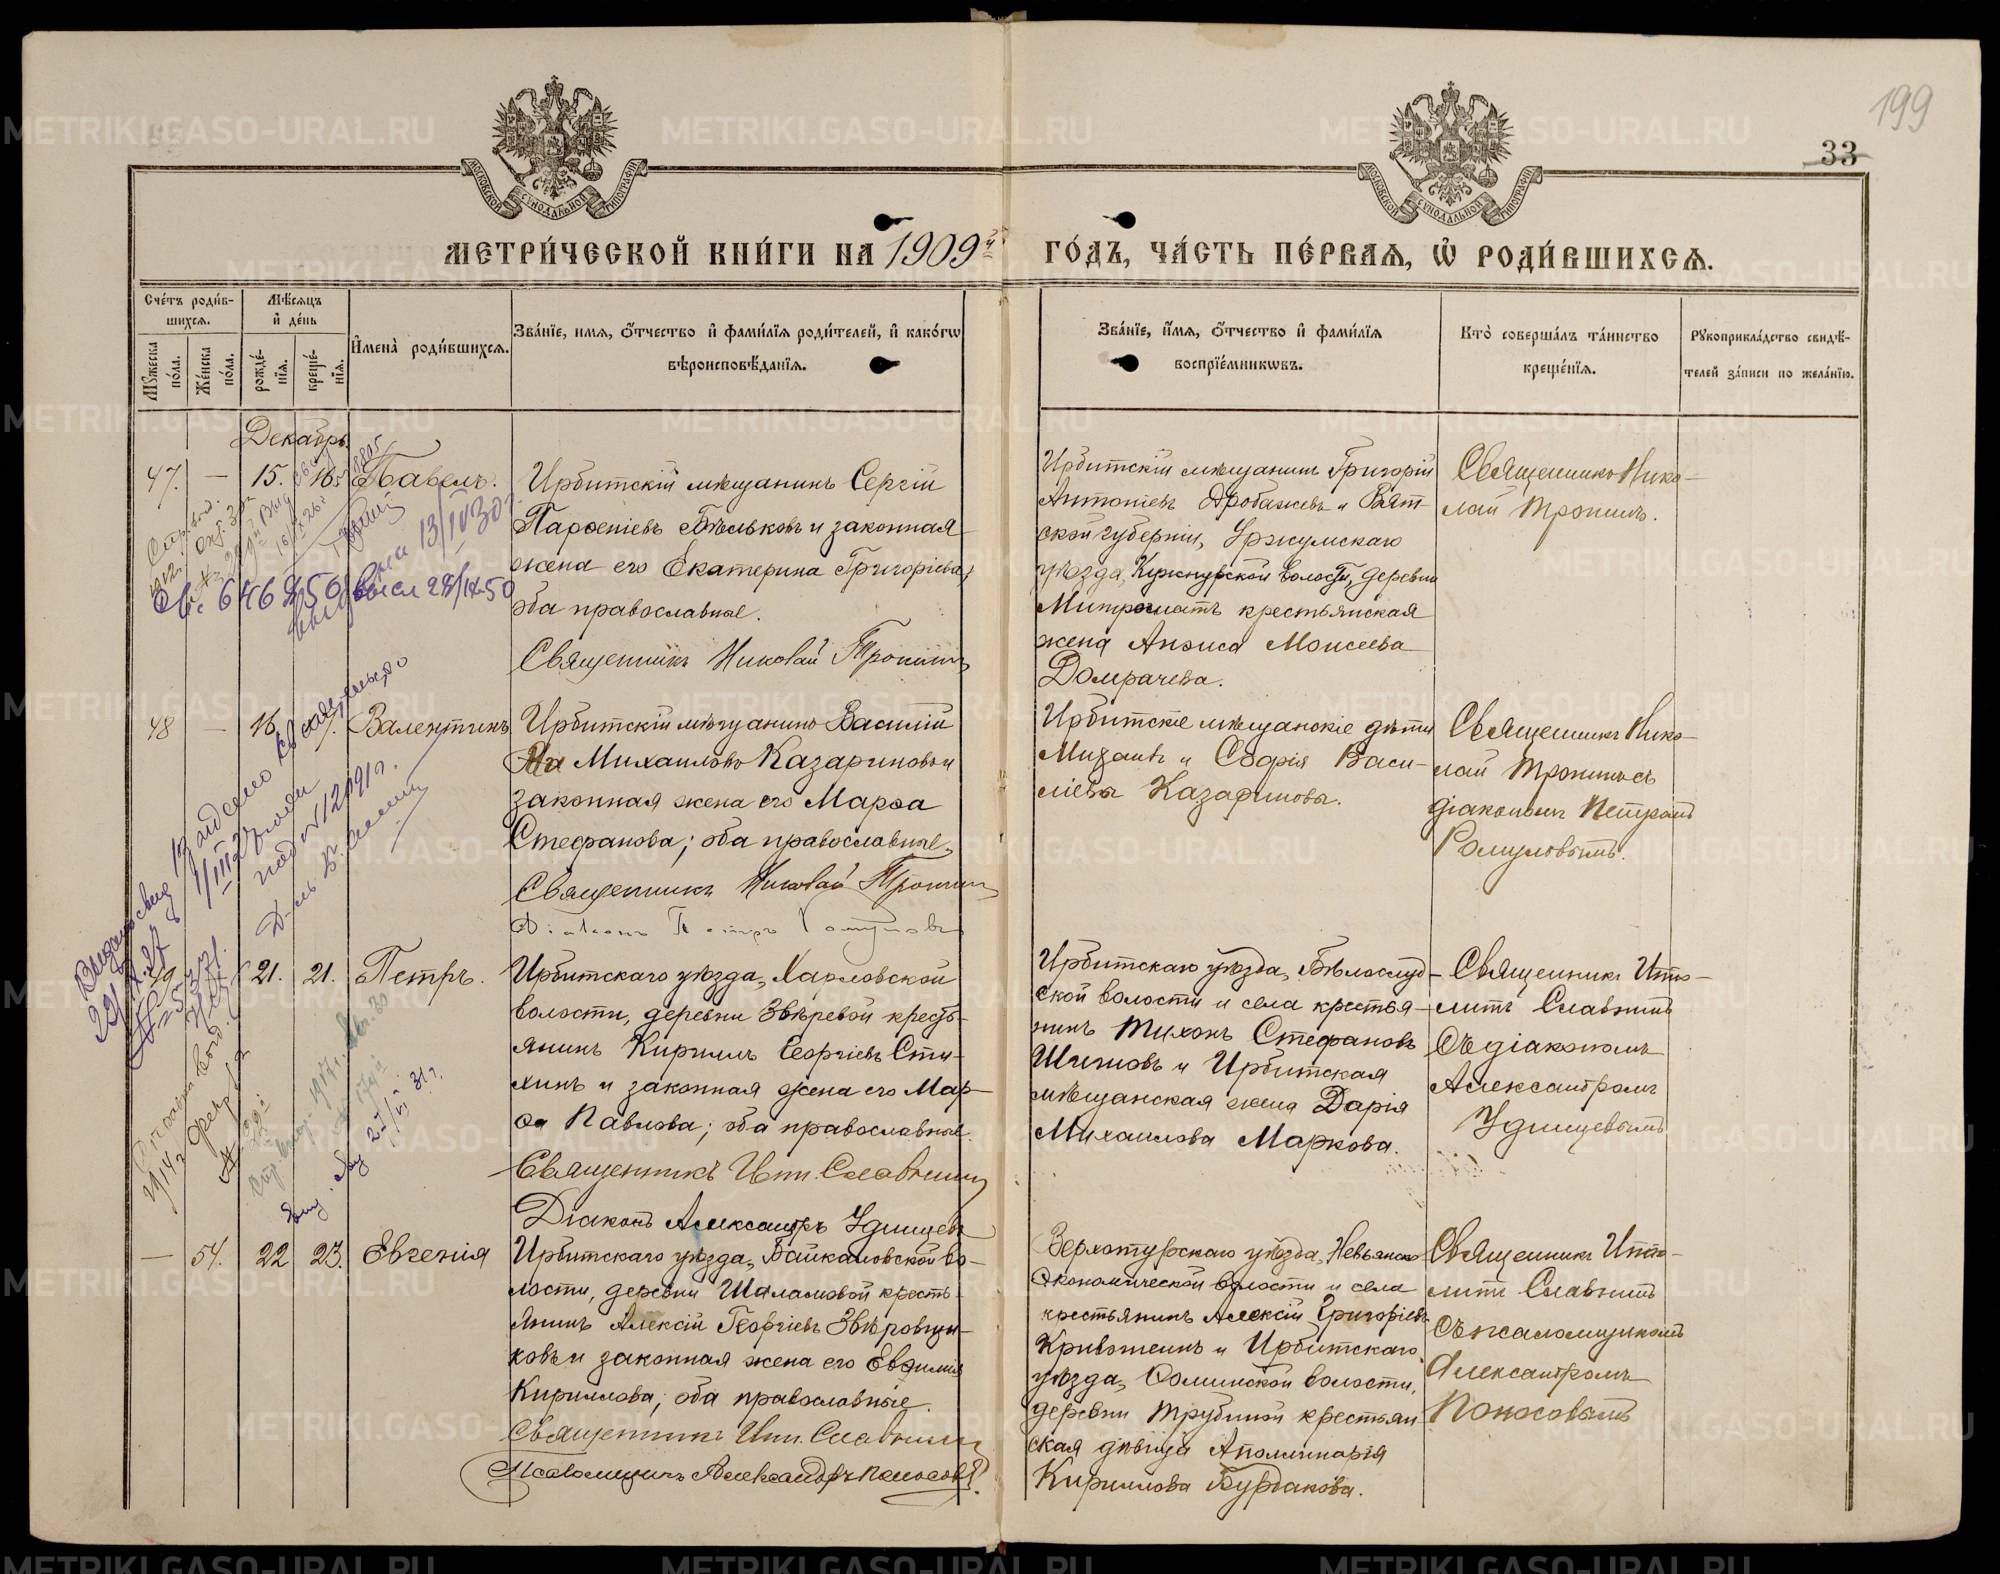 199
33
МОСКОВСКОЙ СУНОДАЛЬНОЙ ТИПОГРАФІИ
МОСКОВСКОЙ СУНОДАЛЬНОЙ ТИПОГРАФІИ
МЕТРИ́ЧЕСКОЙ КНИ́ГИ НА 1909й ГО́ДЪ, ЧА́СТЬ ПЕ́РВАѦ, Ѡ҆ РОДИ́ВШИХСѦ.
Сче́тъ роди́в-
шихсѧ.
Мѣ́сѧцъ
и҆ де́нь
Мꙋ́жеска по́ла.
Же́нска по́ла.
рожде́-
нїѧ.
креще́-
нїѧ.
И҆мена̀ роди́вшихсѧ.
Зва́нїе, имѧ, ѻ҆́тчество и҆ фами́лїѧ роди́телей, и҆ како́гѡ
вѣроисповѣ́данїѧ.
Зва́нїе, и҆́мѧ, ѻ҆́тчество и҆ фами́лїѧ
воспрїе́мникѡвъ.
Кто̀ соверша́лъ та́инство
креще́нїѧ.
Рꙋкоприкла́дство свидѣ́-
телей за́писи по жела́нїю.
Декабрь
47. — 15. 16. Павелъ.
Ирбитскій мѣщанинъ Сергій
Парѳеніевъ Бѣльковъ и законная
жена его Екатерина Григоріева;
оба православные.
Священникъ Николай Тропинъ
Ирбитскій мѣщанинъ Григорій
Антоніевъ Дробажевъ и Вят-
ской губерніи, Уржумскаго
уѣзда, Кужнурской волости, деревни
крестьянская
жена Анѳиса Моисеева
Домрачева.
Священникъ Нико-
лай Тропинъ.
13/IV 30
48 — 16. Валентинъ
Ирбитскій мѣщанинъ Василій
Михаиловъ Казариновъ и
законная жена его Марѳа
Стефанова; оба православные.
Священникъ Николай Тропинъ
Діаконъ Петръ Ромуловъ
Ирбитскіе мѣщанскіе дѣти
Михаилъ и Софія Васи-
ліевы Казариновы.
Священникъ Нико-
лай Тропинъ съ
діакономъ Петромъ
Ромуловымъ.
49 21. 21. Петръ.
Ирбитскаго уѣзда, Харловской
волости, деревни Звѣревой кресть-
янинъ Кириллъ Георгіевъ Сти-
хинъ и законная жена его Мар-
ѳа Павлова; оба православные.
Священникъ Ипп. Славнинъ
Діаконъ Александръ Удинцевъ
Ирбитскаго уѣзда, Бѣлослуд-
ской волости и села крестья-
нинъ Тихонъ Стефановъ
Шиповъ и Ирбитская
мѣщанская жена Дарія
Михаилова Маркова.
Священникъ Иппо-
литъ Славнинъ
съ діакономъ
Александромъ
Удинцевымъ
— 54. 22 23. Евгенія
Ирбитскаго уѣзда, Байкаловской во-
лости, деревни Шаламовой кресть-
янинъ Алексій Георгіевъ Звѣровщи-
ковъ и законная жена его Евѳимія
Кириллова; оба православные.
Священникъ Ипп. Славнинъ
Псаломщикъ Александръ Поносовъ.
Верхотурскаго уѣзда, Невьянско
Экономической волости и села
крестьянинъ Алексій Григоріевъ
и Ирбитскаго
уѣзда, волости,
деревни Трубиной крестьян
ская дѣвица Аполлинарія
Кириллова Бурдакова.
Священникъ Иппо-
литъ Славнинъ
съ псаломщикомъ
Александромъ
Поносовымъ
METRIKI.GASO-URAL.RU